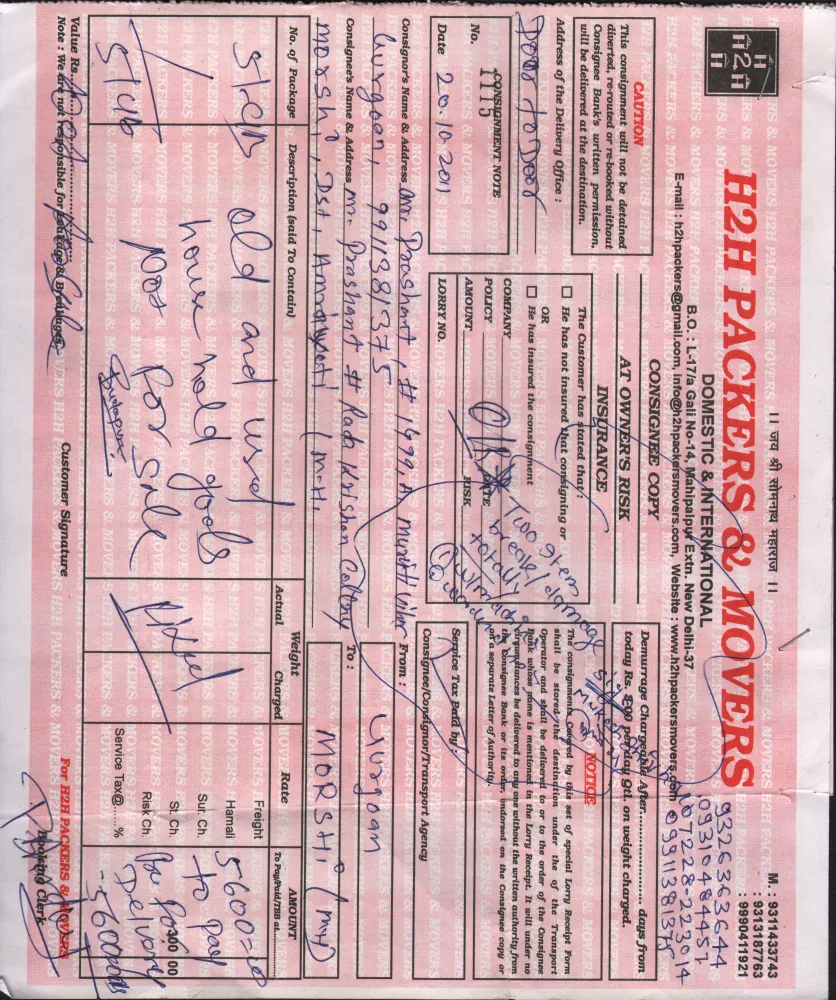 ।। जय श्री सोमनाथ महाराज ।।
M. : 9311433743
: 9313187763
: 9990411921
H
H2H
H
H2H PACKERS & MOVERS
9326363644
09310484457
07228-223014
09911381375
DOMESTIC & INTERNATIONAL
B.O. : L-17/a Gali No-14, Mahipalpur Extn. New Delhi-37
E-mail : h2hpackers@gmail.com, info@h2hpackersmovers.com, Website : www.h2hpackersmovers.com
CAUTION
This consignment will not be detained
diverted, re-routed or re-booked without
Consignee Bank's written permission,
will be delivered at the destination.
Address of the Delivery Office :
Door to Door
CONSIGNMENT NOTE
No. 1115
Date 20.10.2011
CONSIGNEE COPY
AT OWNER'S RISK
INSURANCE
The Customer has stated that :
He has not insured that consigning or
OR
He has insured the consignment
COMPANY
POLICY DATE
AMOUNT RISK
LORRY NO.
Two item
break/damage
totally
Demurrage Chargeable After.................... days from
today Rs. 8-00 per day Qtl. on weight charged.
NOTICE
The consignments Covered by this set of special Lorry Receipt Form
shall be stored the destination under the of the Transport
Operator and shall be delivered to or to the order of the Consignee
Bank whose name is mentioned in the Lorry Receipt. It will under no
circumstances be delivered to any one without the written authority from
the Consignee Bank or its order, endorsed on the Consignee copy or
on a separate Letter of Authority.
Service Tax Paid by :
Consignee/Consignor/Transport Agency
Consignor's Name & Address Mr. Prashant, # 1499, Maruti Vihar
Gurgaon, 9911381375
From :
Gurgoan
Consignee's Name & Address Mr. Prashant # Radha Krishan Collony
Morshi, Dst, Amravati (M.H.
To :
MORSHI (MH)
No. of Package
Description (said To Contain)
Weight
Actual
Charged
Rate
AMOUNT
To Pay/Paid/TBB at..........
old and used
house hold goods
not for sale
Freight
Hamali
Sur. Ch.
St. Ch.
Risk Ch.
Service Tax@......%
5600=00
to pay
for
Delivery
300 00
Value Rs.
Note : We are not responsible for Leakage & Breakages
Customer Signature
For H2H PACKERS & MOVERS
Booking Clerk